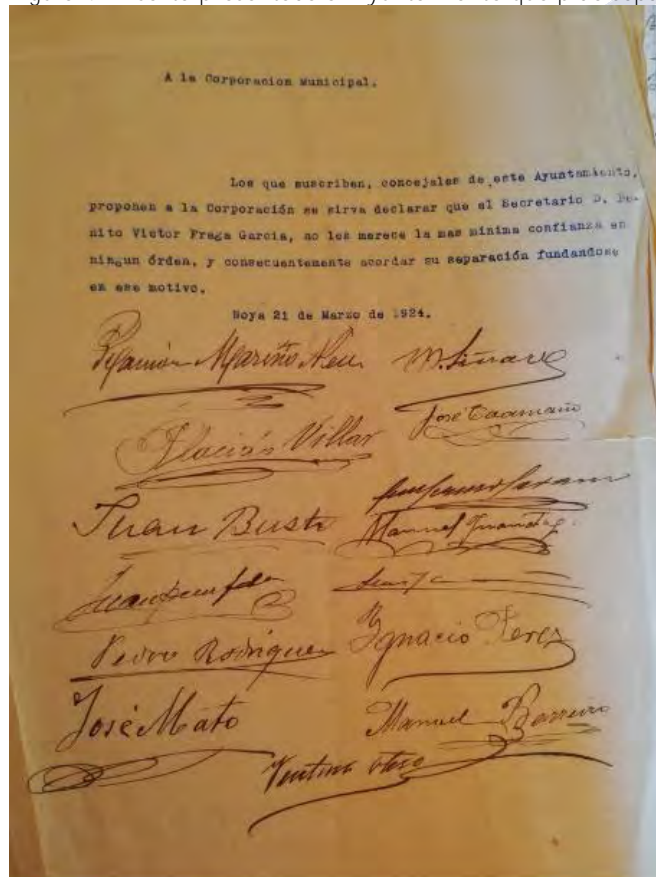 A la Corporacion Municipal.
Los que suscriben, concejales de este Ayuntamiento,
proponen a la Corporación se sirva declarar que el Secretario D. Be-
nito Victor Fraga Garcia, no les merece la mas minima confianza en
ningun órden, y consecuentemente acordar su separación fundandose
en ese motivo.
Noya 21 de Marzo de 1924.
Ramón Mariño
José Caamaño
Villar
Juan Busto
Manuel
Pedro Rodriguez
Ignacio Perez
José Mato
Manuel Barreiro
Ventura Otero